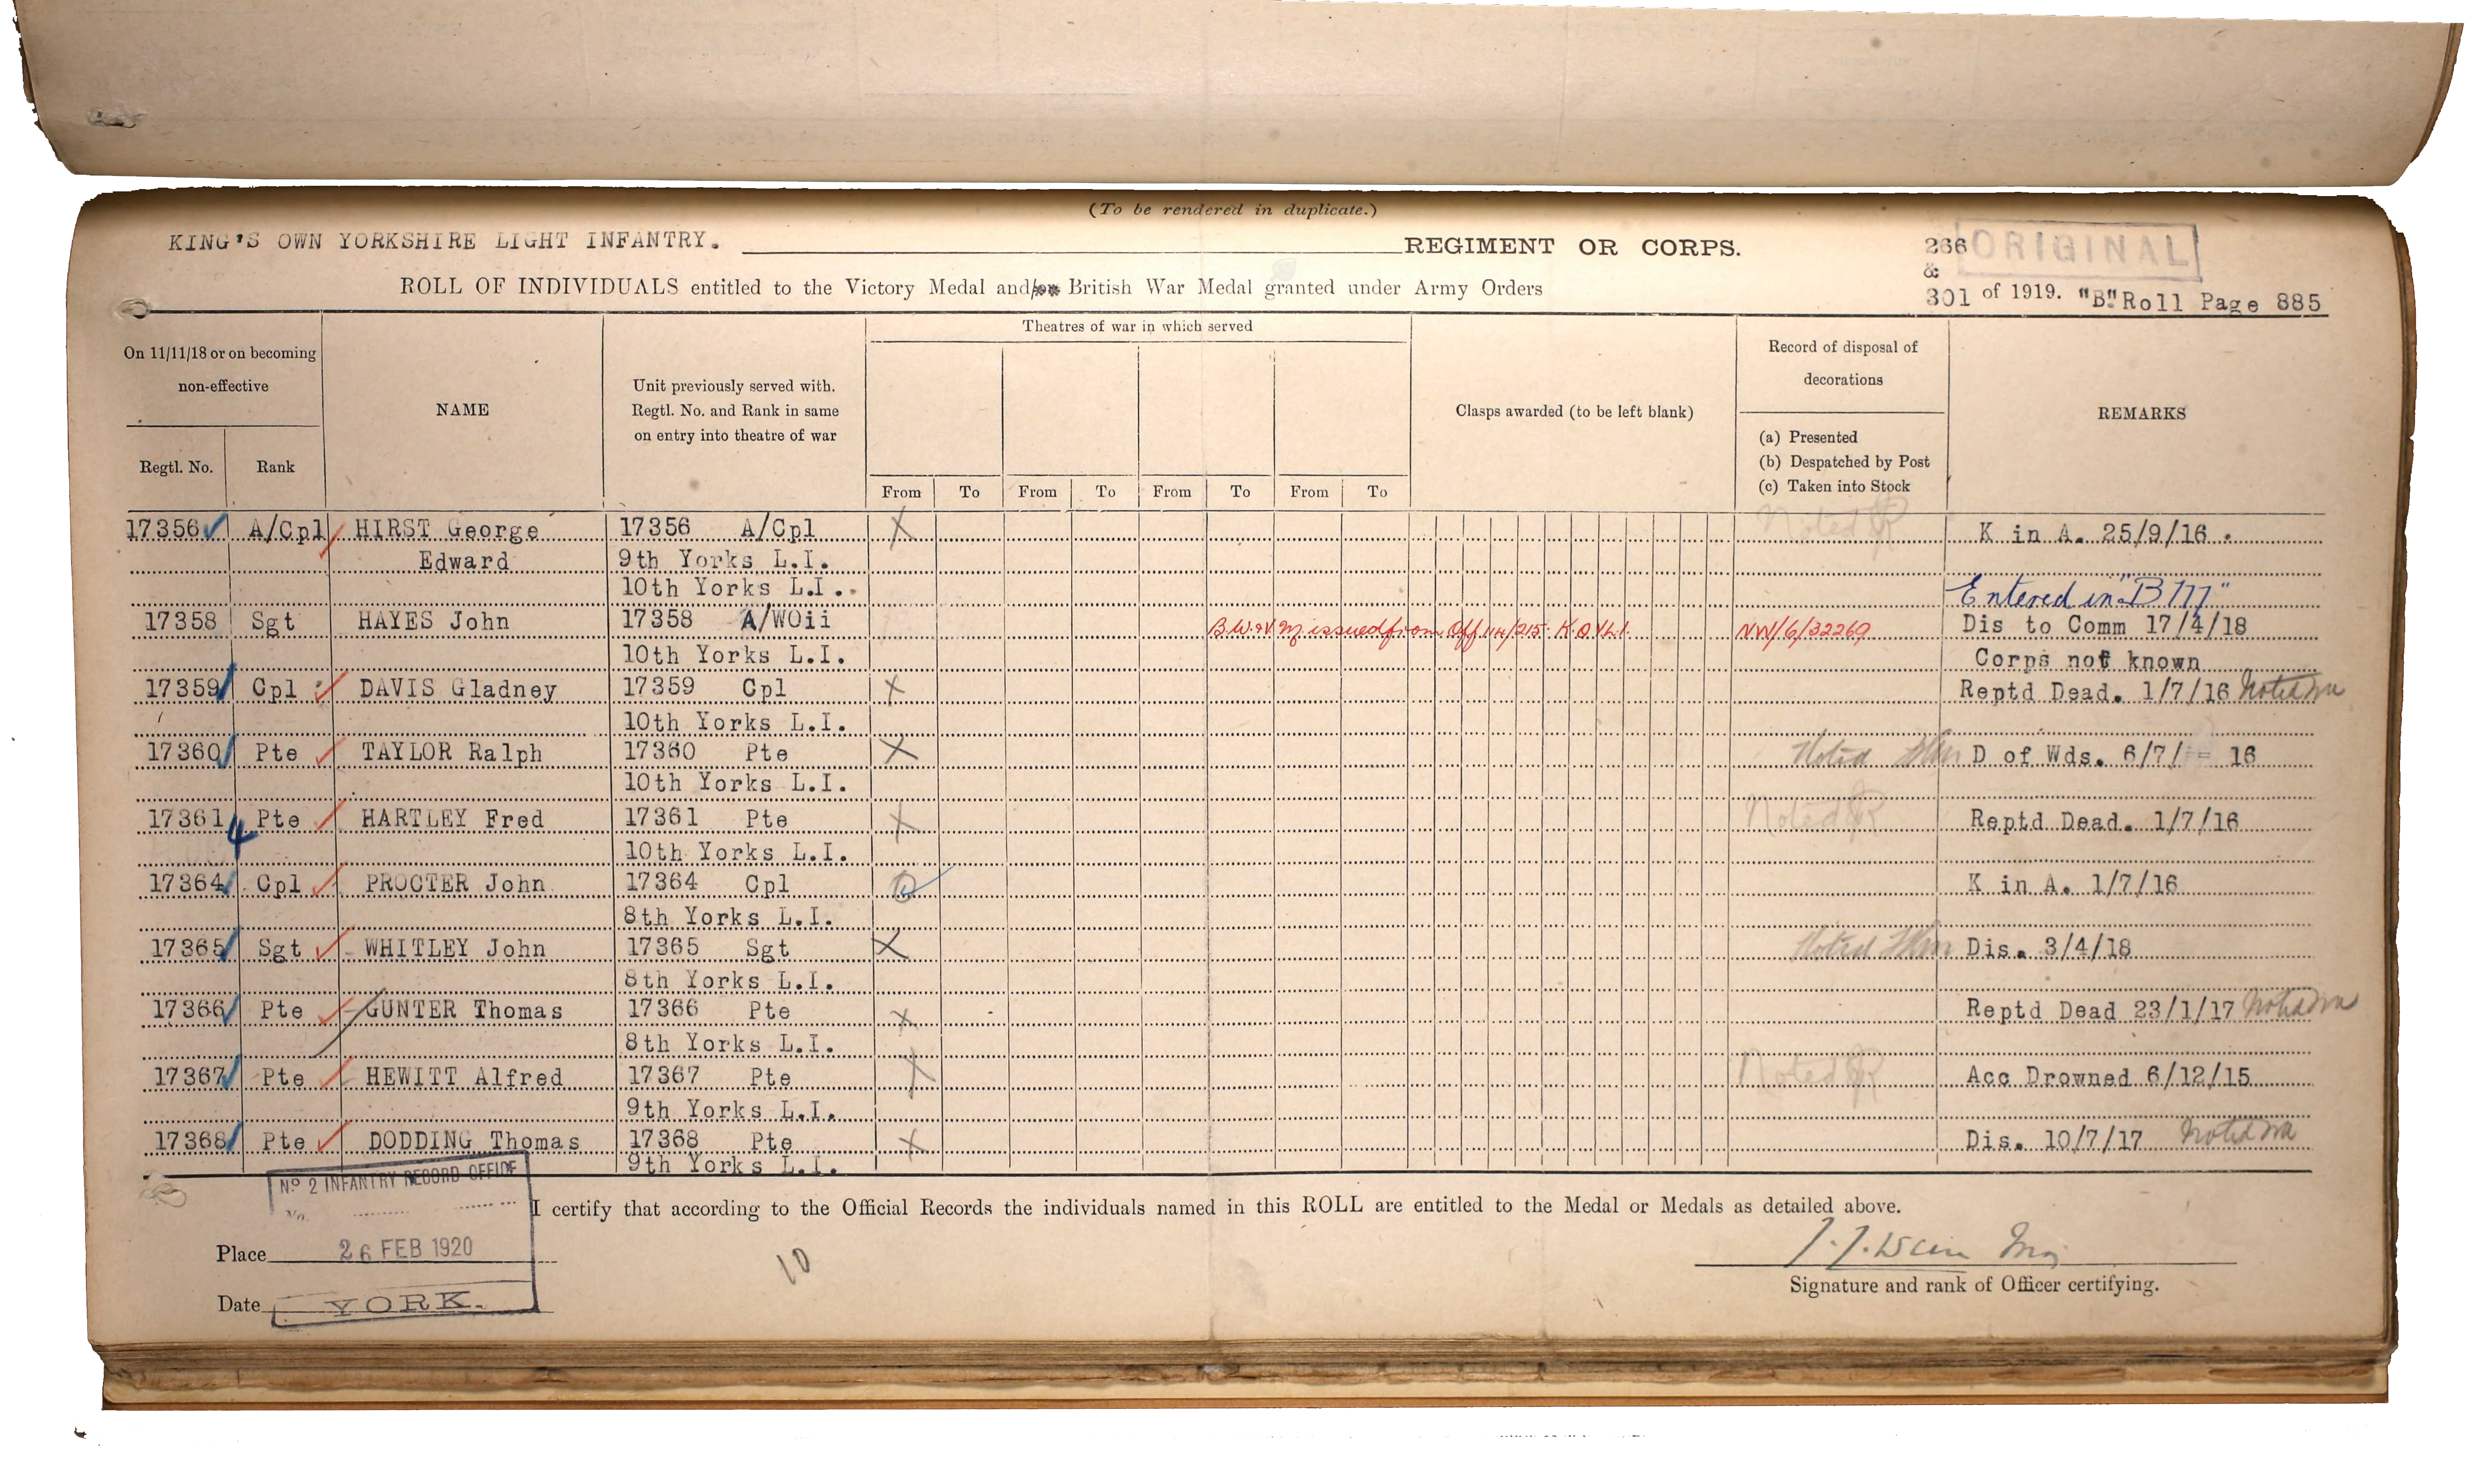 (To be rendered in duplicate.)
KING'S OWN YORKSHIRE LIGHT INFANTRY. REGIMENT OR CORPS. 266 ORIGINAL
&
ROLL OF INDIVIDUALS entitled to the Victory Medal and/or British War Medal granted under Army Orders 301 of 1919. "B" Roll Page 885
Theatres of war in which served
On 11/11/18 or on becoming non-effective
Regtl. No. Rank
NAME
Unit previously served with.
Regtl. No. and Rank in same
on entry into theatre of war
From To From To From To From To
Clasps awarded (to be left blank)
Record of disposal of
decorations
(a) Presented
(b) Despatched by Post
(c) Taken into Stock
REMARKS
17356 A/Cpl HIRST George 17356 A/Cpl X Noted K in A. 25/9/16.
Edward 9th Yorks L.I.
10th Yorks L.I. Entered in "B 177"
17358 Sgt HAYES John 17358 A/WOii B.W. & V M issued from Off 114/215 K.O.Y.L.I. NW/6/32269 Dis to Comm 17/4/18
10th Yorks L.I. Corps not known
17359 Cpl DAVIS Gladney 17359 Cpl X Reptd Dead. 1/7/16 Noted
10th Yorks L.I.
17360 Pte TAYLOR Ralph 17360 Pte X Noted D of Wds. 6/7/ 16
10th Yorks L.I.
17361 4 Pte HARTLEY Fred 17361 Pte X Noted Reptd Dead. 1/7/16
10th Yorks L.I.
17364 Cpl PROCTER John 17364 Cpl K in A. 1/7/16
8th Yorks L.I.
17365 Sgt WHITLEY John 17365 Sgt X Noted Dis. 3/4/18
8th Yorks L.I.
17366 Pte GUNTER Thomas 17366 Pte X Reptd Dead 23/1/17 Noted
8th Yorks L.I.
17367 Pte HEWITT Alfred 17367 Pte X Noted Acc Drowned 6/12/15
9th Yorks L.I.
17368 Pte DODDING Thomas 17368 Pte X Dis. 10/7/17 Noted
9th Yorks L.I.
No 2 INFANTRY RECORD OFFICE
No.
I certify that according to the Official Records the individuals named in this ROLL are entitled to the Medal or Medals as detailed above.
Place 26 FEB 1920
10
Signature and rank of Officer certifying.
Date YORK.